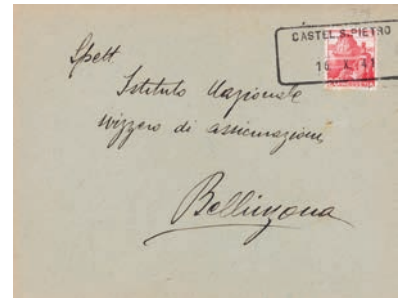 CASTEL S. PIETRO
Spett.
Istituto Nazionale
svizzero di assicurazioni,
Bellinzona